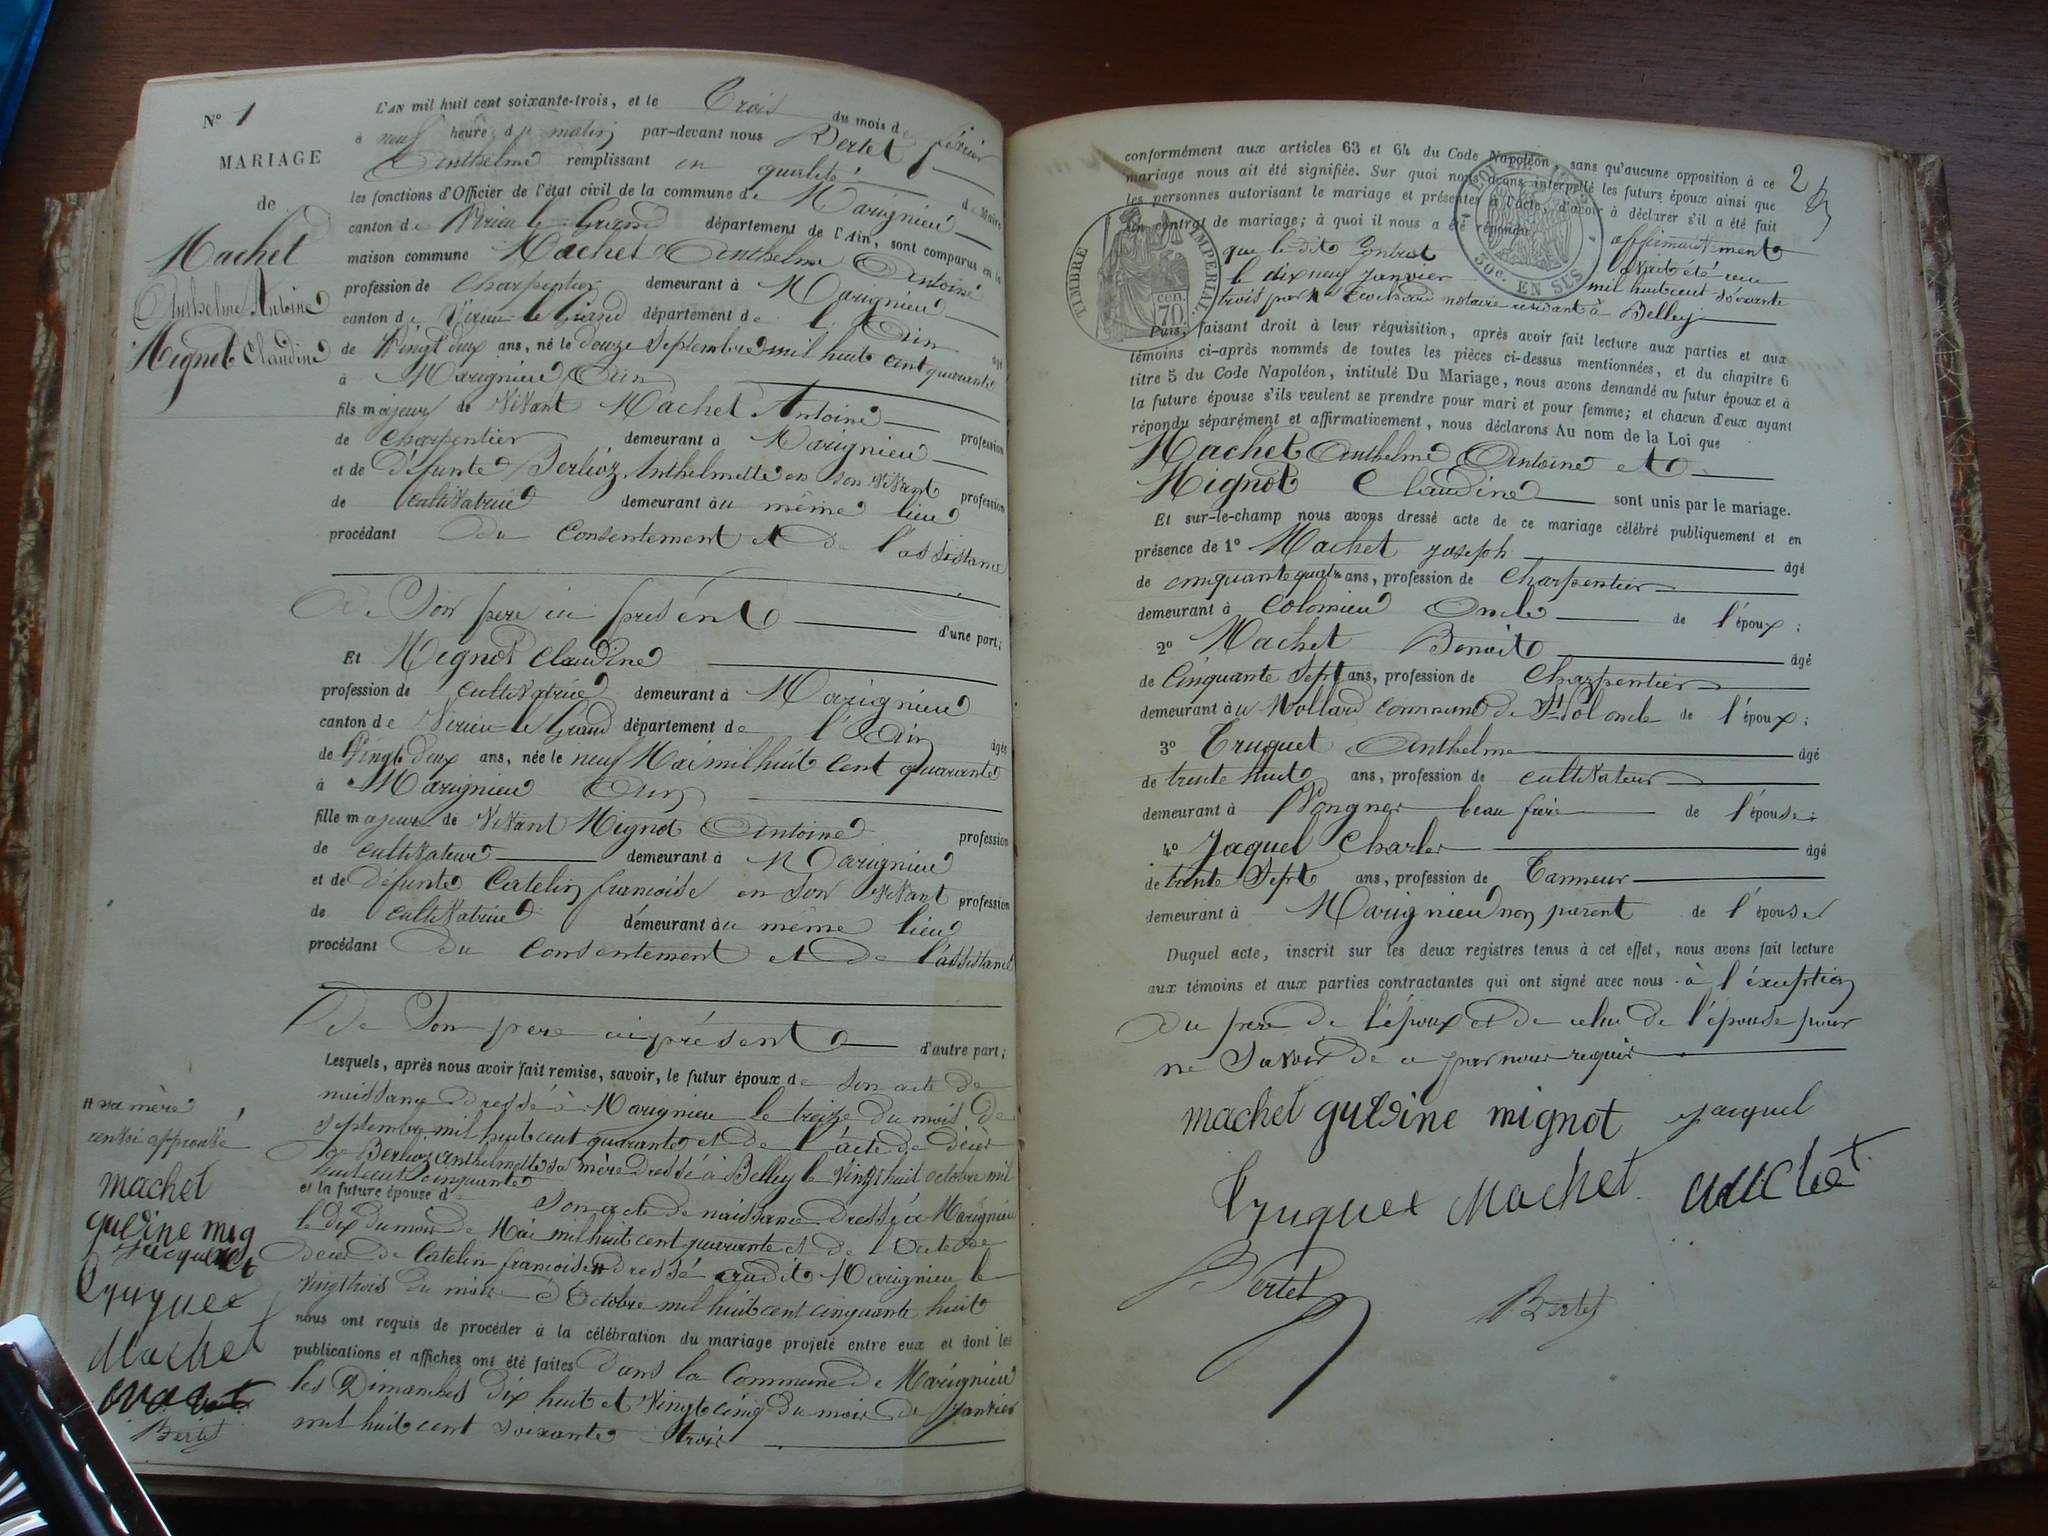 N° 1
MARIAGE
de
Machet
Anthelme Antoine
Mignot Claudine
L'AN mil huit cent soixante-trois, et le Trois du mois de février
à neuf heure du matin par-devant nous Bertet
Anthelme remplissant en qualité de Maire
les fonctions d'Officier de l'état civil de la commune de Marignieu
canton de Virieu le Grand département de l'Ain, sont comparus en la
maison commune Machet Anthelme Antoine
profession de Charpentier demeurant à Marignieu
canton de Virieu le Grand département de l'Ain âgé
de Vingt deux ans, né le douze Septembre mil huit cent quarante
à Marignieu Ain
fils majeur de Vivant Machet Antoine profession
de Charpentier demeurant à Marignieu
et de défunte Berlioz Anthelmette en son vivant profession
de cultivatrice demeurant au même lieu
procédant du Consentement et de l'assistance
de Son père ici présent d'une part;
Et Mignot Claudine
profession de cultivatrice demeurant à Marignieu
canton de Virieu le Grand département de l'Ain âgée
de Vingt deux ans, née le neuf Mai mil huit cent quarante
à Marignieu Ain
fille majeure de Vivant Mignot Antoine profession
de cultivateur demeurant à Marignieu
et de défunte Catelin françoise en son vivant profession
de cultivatrice demeurant au même lieu
procédant du consentement et de l'assistance
de Son père ici présent d'autre part;
Lesquels, après nous avoir fait remise, savoir, le futur époux de son acte de
naissance dressé à Marignieu le treize du mois de
septembre mil huit cent quarante et de l'acte de décès
de Berlioz anthelmette sa mère dressé à Belley le vingt huit octobre mil
huit cent cinquante
et la future épouse de Son acte de naissance dressé à Marignieu
le dix du mois de Mai mil huit cent quarante et de l'acte de
décès de Catelin françoise # dressé audit Marignieu le
vingt trois du mois d'Octobre mil huit cent cinquante huit
nous ont requis de procéder à la célébration du mariage projeté entre eux et dont les
publications et affiches ont été faites dans la Commune de Marignieu
les Dimanches dix huit et Vingt cinq du mois de janvier
mil huit cent soixante trois
# sa mère
renvoi approuvé
machet
guidine mig
Jacquel
Truguet
Machet
Bertet
2
conformément aux articles 63 et 64 du Code Napoléon, sans qu'aucune opposition à ce
mariage nous ait été signifiée. Sur quoi nous avons interpellé les futurs époux ainsi que
les personnes autorisant le mariage et présentes à l'acte, d'avoir à déclarer s'il a été fait
un contrat de mariage; à quoi il nous a été répondu affirmativement
que le dit Contrat avait été reçu
le dix neuf janvier mil huit cent soixante
trois par notaire résidant à Belley
TIMBRE IMPÉRIAL
70 cen.
50c. EN SUS
Puis, faisant droit à leur réquisition, après avoir fait lecture aux parties et aux
témoins ci-après nommés de toutes les pièces ci-dessus mentionnées, et du chapitre 6
titre 5 du Code Napoléon, intitulé Du Mariage, nous avons demandé au futur époux et à
la future épouse s'ils veulent se prendre pour mari et pour femme; et chacun d'eux ayant
répondu séparément et affirmativement, nous déclarons Au nom de la Loi que
Machet Anthelme Antoine et
Mignot Claudine sont unis par le mariage.
Et sur-le-champ nous avons dressé acte de ce mariage célébré publiquement et en
présence de 1° Machet joseph âgé
de cinquante quatre ans, profession de Charpentier
demeurant à Colomieu Oncle de l'époux;
2° Machet Benoit âgé
de Cinquante Sept ans, profession de Charpentier
demeurant au Mollard Commune de St Bol oncle de l'époux;
3° Truguet Anthelme âgé
de trente huit ans, profession de cultivateur
demeurant à Vongnes beau frère de l'épouse;
4° Jaquel Charles âgé
de trente Sept ans, profession de Tanneur
demeurant à Marignieu non parent de l'épouse
Duquel acte, inscrit sur les deux registres tenus à cet effet, nous avons fait lecture
aux témoins et aux parties contractantes qui ont signé avec nous à l'éxception
du père de l'époux et de celui de l'épouse pour
ne Savoir de ce par nous requis
machet guidine mignot Jacquel
Truguet Machet
Bertet
Bertet